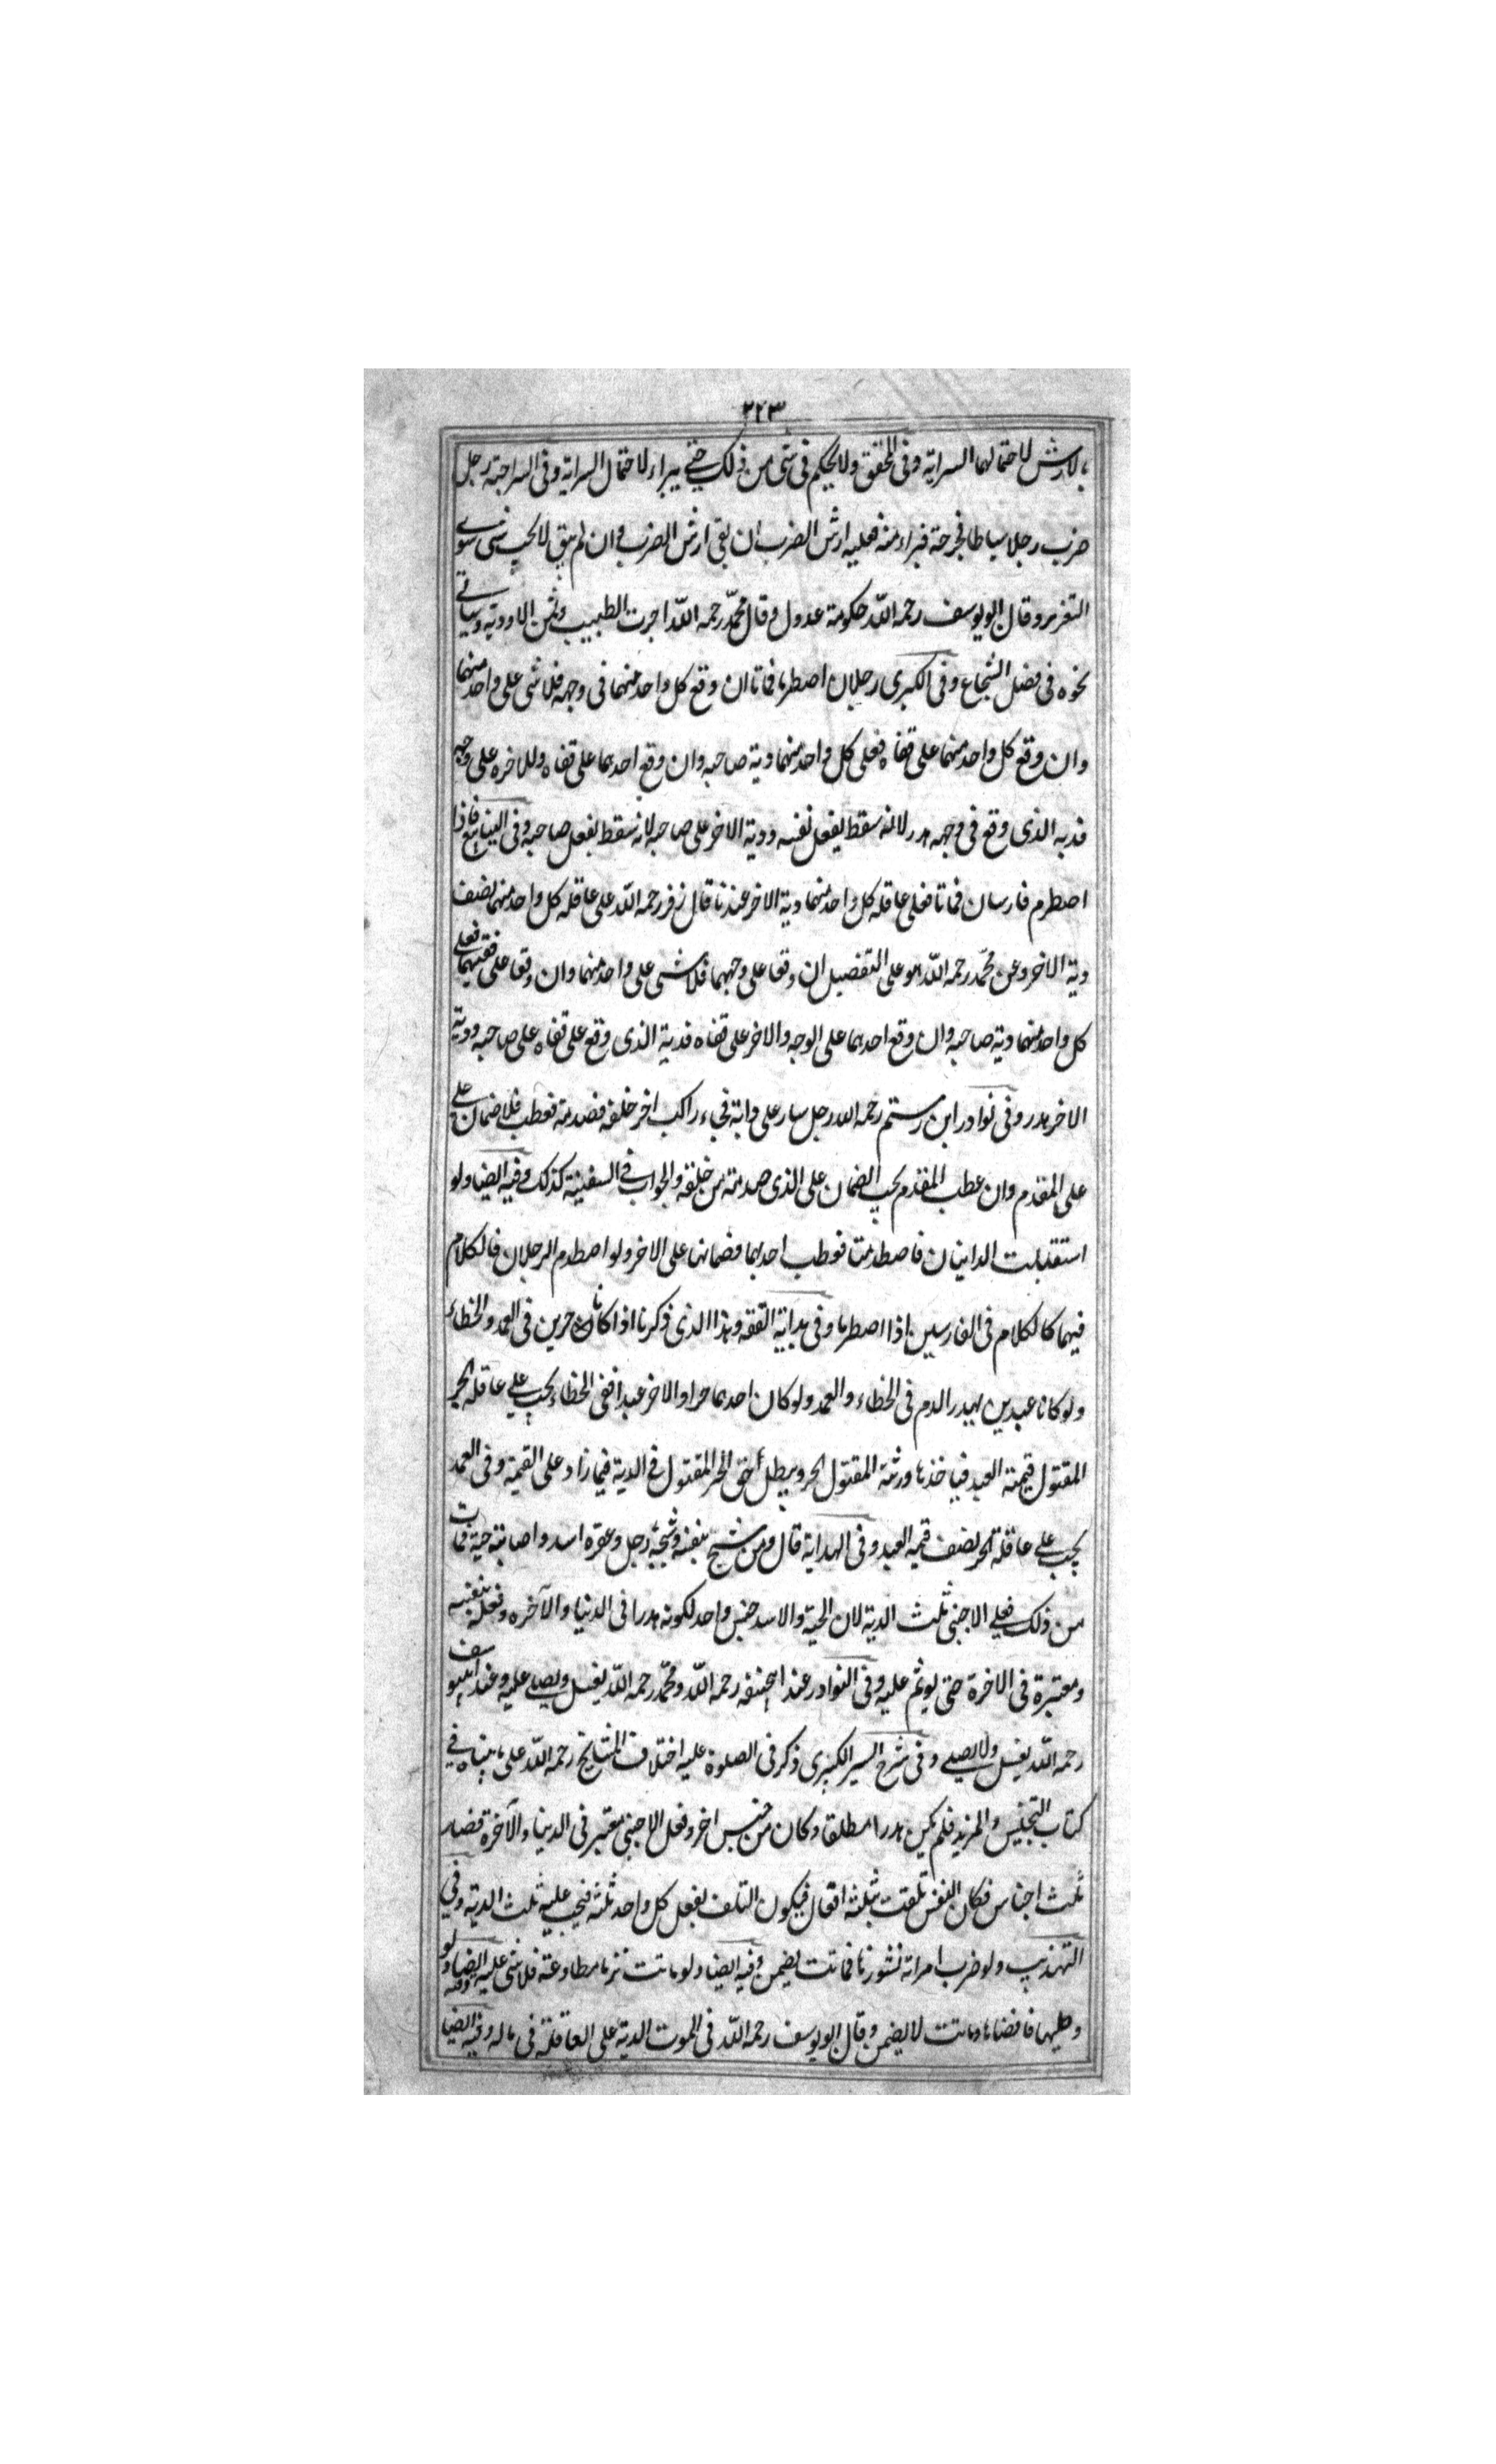 ٢٢٣
بالارش لاحتمالهما السراية وفى المحقق ولا يحكم فى شئ من ذلك حتى يبراء لاحتمال السراية وفى السراجية رجل
ضرب رجلا سياطا فجرحة فبراء منه فعليه ارش الضرب ان بقى ارش الضرب وان لم يبق لا يجب شئ سوى
التعزير وقال ابو يوسف رحمه اللّه حكومة عدول وقال محمّد رحمه اللّه اجرت الطبيب وثمن الاودية وسياتى
نحوه فى فصل الشجاع وفى الكبرى رجلان اصطرما فماتا ان وقع كل واحد منهما فى وجهه فلا شى على واحد منهما
وان وقع كل واحد منهما على قفاه فعلى كل واحد منهما دية صاحبه وان وقع احدهما على قفاه وللاخره على وجهه
فدية الذى وقع فى وجهه هدر لانه سقط بفعل نفسه ودية الاخر على صاحبه لانه سقط بفعل صاحبه وفى الينابيع فاذا
اصطرم فارسان فماتا فعلى عاقله كل واحد منهما دية الاخر عندنا قال زفر رحمه اللّه على عاقله كل واحد منهما نصف
دية الاخر وعن محمّد رحمه اللّه هو على التفصيل ان وقعا على وجههما فلا شى على واحد منهما وان وقعا على قفيهما فعلى
كل واحد منهما دية صاحبه وان وقع احدهما على الوجه والاخر على قفاه فدية الذى وقع على قفاه على صاحبه ودية
الاخر هدر وفى نوادر ابن رستم رحمه الله رجل سار على دابة فجاء راكب اخر خلفه فصدمته فعطب فلا ضمان على
على المقدم وان عطب المقدم يجب الضمان على الذى صدمته من خلفه والجواب فى السفينة كذلك وفيه ايضا ولو
استقبلت الدابتان فاصطدمتا فوطب احدهما فضمانها على الاخر ولو اصطدم الرجلان فالكلام
فيهما كالكلام فى الفارسين اذا اصطرما وفى هداية الفقه وهذا الذى ذكرنا اذا كانا حرين فى العمد والخطاء
ولو كانا عبدين يهدر الدم فى الخطاء والعمد ولو كان احدهما حرا والاخر عبدا ففى الخطاء يجب على عاقله الحر
المقتول قيمته العبد فياخذها ورثة المقتول الحر ويبطل حق الحر المقتول فى الدية فيما زاد على القيمة وفى العمد
يجب على عاقلة الحر نصف قيمه العبد وفى الهداية قال ومن شج بنفسه وشجه رجل وعقره اسد واصابته حية فمات
من ذلك فعلى الاجنبى ثلث الدية لان الحية والاسد جنس واحد لكونه هدرا فى الدنيا والآخره وفعله بنفسه
ومعتبرة فى الاخرة حتى يوثم عليه وفى النوادر عند ابيحنيفه رحمه اللّه ومحمّد رحمه اللّه يغسل ويصلى عليه وعند ابييوسف
رحمه اللّه يغسل ولا يصلى وفى شرح السير الكبرى ذكر فى الصلوة عليه اختلاف المشايخ رحمه اللّه على ما بيناه فى
كتاب التجنيس والمزيد فلم يكن هدرا مطلقا وكان من جنس اخر وفعل الاجنبى معتبر فى الدنيا والآخرة فصار
ثلث اجناس فكان النفس تلفت بثلثه افعال فيكون التلف بفعل كل واحد ثلثه فيجب عليه ثلث الدية وفى
التهذيب ولو ضرب امراته نشوزنا فماتت يضمن وفيه ايضا ولو ماتت مطاوعته فلا شئ عليه وفيه ايضا ولو
وطيها فافضاها وماتت لا يضمن وقال ابو يوسف رحمه اللّه فى الموت الدية على العاقلة فى ماله وفيه ايضا